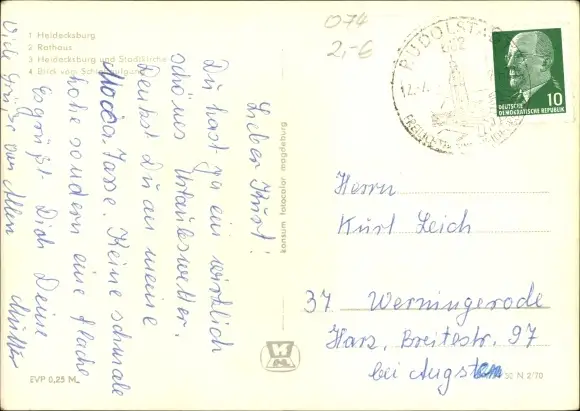 1 Heidecksburg
2 Rathaus
3 Heidecksburg und Stadtkirche
4 Blick vom
Lieber Kurt!
Du hast ja ein wirklich
schönes Urlaubswetter.
Denkst Du an meine
Mocca Tasse. Keine schmale
hohe sondern eine flache
Es grüßt Dich Deine
Mutter
Viele Grüße von Allen
konsum fotocolor magdeburg
EVP 0,25 M
074
2,-€
RUDOLSTADT
682
DEUTSCHE
DEMOKRATISCHE REPUBLIK
10
Herrn
Kurt Leich
37 Werningerode
Harz, Breitestr. 97
bei Augsten
N 2/70